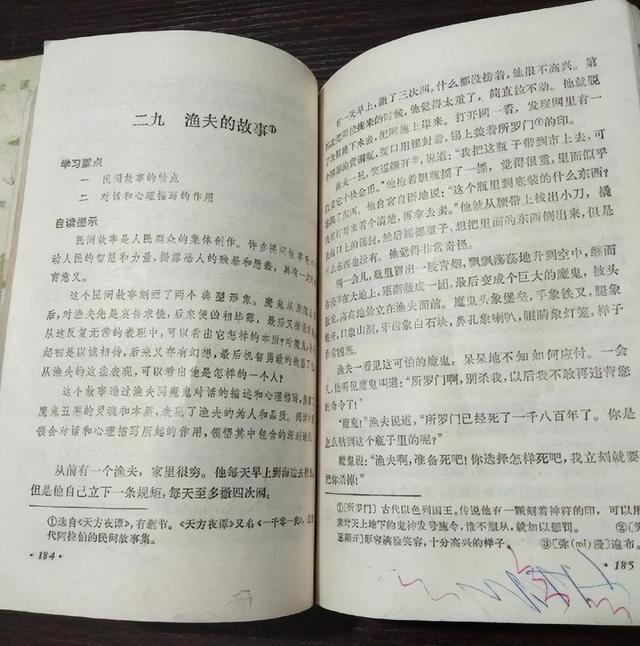 二九 渔夫的故事①
学习重点
一 民间故事的特点
二 对话和心理描写的作用
自读提示
民间故事是人民群众的集体创作。许多民间故事
动人民的智慧和力量，揭露恶人的残暴和愚蠢，具有
育意义。
这个民间故事刻画了两个典型形象。魔鬼从到
后，对渔夫先是哀告求饶，后来便凶相毕露，最后又
从这反复无常的表现中，可以看出它怎样的本质？对魔鬼，
起初是以诚相待，后来又存有幻想，最后机智勇敢的战
从渔夫的这些表现，可以看出他是怎样的一个人？
这个故事通过渔夫同魔鬼对话的描述和心理描写，
魔鬼丑恶的灵魂和本质，表现了渔夫的为人和品质。阅读
领会对话和心理描写所起的作用，领悟其中包含的深刻
从前有一个渔夫，家里很穷。他每天早上到海边去
但是他自己立下一条规矩，每天至多撒四次网。
①选自《天方夜谭》，有删节。《天方夜谭》又名《一千零一夜》，
代阿拉伯的民间故事集。
·184·
有一天早上，撒了三次网，什么都没捞着，他很不高兴。第
次把网拉拢来的时候，他觉得太重了，简直拉不动。他就脱
衣服跳下水去，把网拖上岸来。打开网一看，发现网里有一
胆形的黄铜瓶，瓶口用锡封着，锡上盖着所罗门①的印。
渔夫一见，笑逐颜开②，说道：“我把这瓶子带到市上去，可
卖它十块金币。”他抱着胆瓶摇了一摇，觉得很重，里面似乎
满了东西，他自言自语地说：“这个瓶里到底装的什么东西？
打开来看个清楚，再拿去卖。”他就从腰带上拔出小刀，撬
瓶口上的锡封，然后摇摇瓶子，想把里面的东西倒出来，但是
么东西也没有。他觉得非常奇怪。
隔一会儿，瓶里冒出一股青烟，飘飘荡荡地升到空中，继而
漫③在大地上，逐渐凝成一团，最后变成个巨大的魔鬼，披头
发，高高地耸立在渔夫面前。魔鬼头象堡垒，手象铁叉，腿象
杆，口象山洞，牙齿象白石块，鼻孔象喇叭，眼睛象灯笼，样子
常凶恶。
渔夫一看见这可怕的魔鬼，呆呆地不知如何应付。一会
儿，他听见魔鬼叫道：“所罗门啊，别杀我，以后我不敢再违背您
的命令了！”
“魔鬼！”渔夫说道，“所罗门已经死了一千八百年了。你是
怎么钻到这个瓶子里的呢？”
魔鬼说：“渔夫啊，准备死吧！你选择怎样死吧，我立刻就要
把你杀掉！”
①〔所罗门〕古代以色列国王。传说他有一颗刻着神符的印，可以用
来对天上地下的鬼神发号施令，谁不服从，就加以惩罚。 ②〔笑
逐颜开〕形容满脸笑容，十分高兴的样子。 ③〔弥（mí）漫〕遍布。
·185·